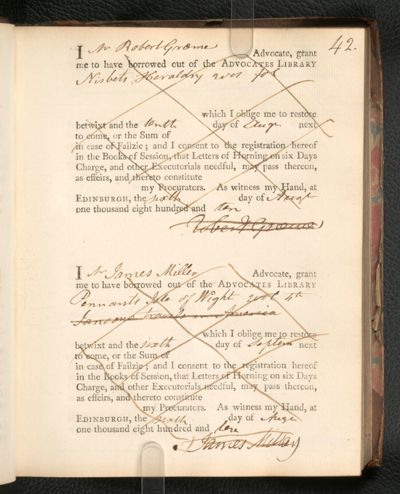 42.
I Mr Robert Græme Advocate, grant
me to have borrowed out of the ADVOCATES LIBRARY
Nisbets Heraldry 2 vols fol
which I oblige me to restore
betwixt and the tenth day of Augt next
to come, or the Sum of
in case of Failzie; and I consent to the registration hereof
in the Books of Session, that Letters of Horning on six Days
Charge, and other Executorials needful, may pass thereon,
as effeirs, and thereto constitute
my Procurators. As witness my Hand, at
EDINBURGH, the sixth day of Augt
one thousand eight hundred and ten
Robert Græme
I Mr James Miller Advocate, grant
me to have borrowed out of the ADVOCATES LIBRARY
Pennants Isle of Wight 2 vol 4to
travels in America
which I oblige me to restore
betwixt and the sixth day of Septem next
to come, or the Sum of
in case of Failzie; and I consent to the registration hereof
in the Books of Session, that Letters of Horning on six Days
Charge, and other Executorials needful, may pass thereon,
as effeirs, and thereto constitute
my Procurators. As witness my Hand, at
EDINBURGH, the sixth day of Augt
one thousand eight hundred and ten
James Miller